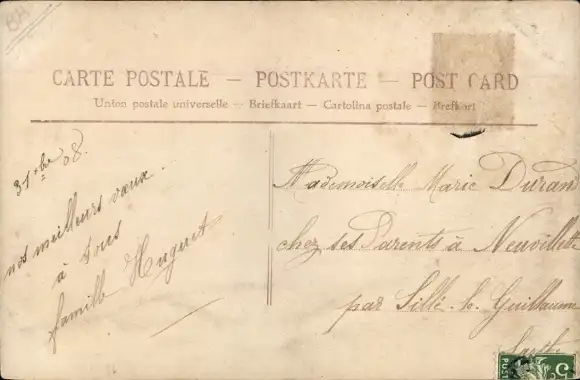 BH
CARTE POSTALE – POSTKARTE – POST CARD
Union postale universelle – Briefkaart – Cartolina postale – Brefkort
31 xbre 08.
nos meilleurs vœux
à tous
famille Huguet
Mademoiselle Marie Durand
chez ses Parents à Neuvillette
par Sillé-le-Guillaume
Sarthe
5
POST